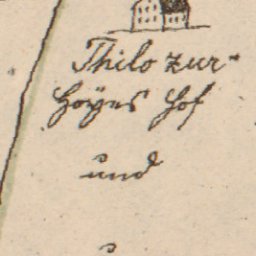 Thilo zur-
Hoÿes Hof
und